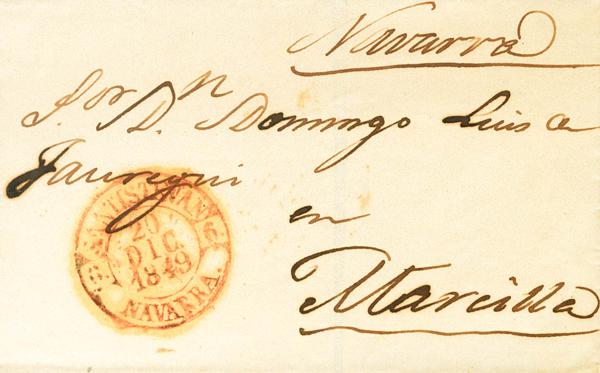 Navarra
S.or D.n Domingo Luis de
Jauregui
en
Marcilla
SANTISTEBAN
20
DIC
1849
NAVARRA.